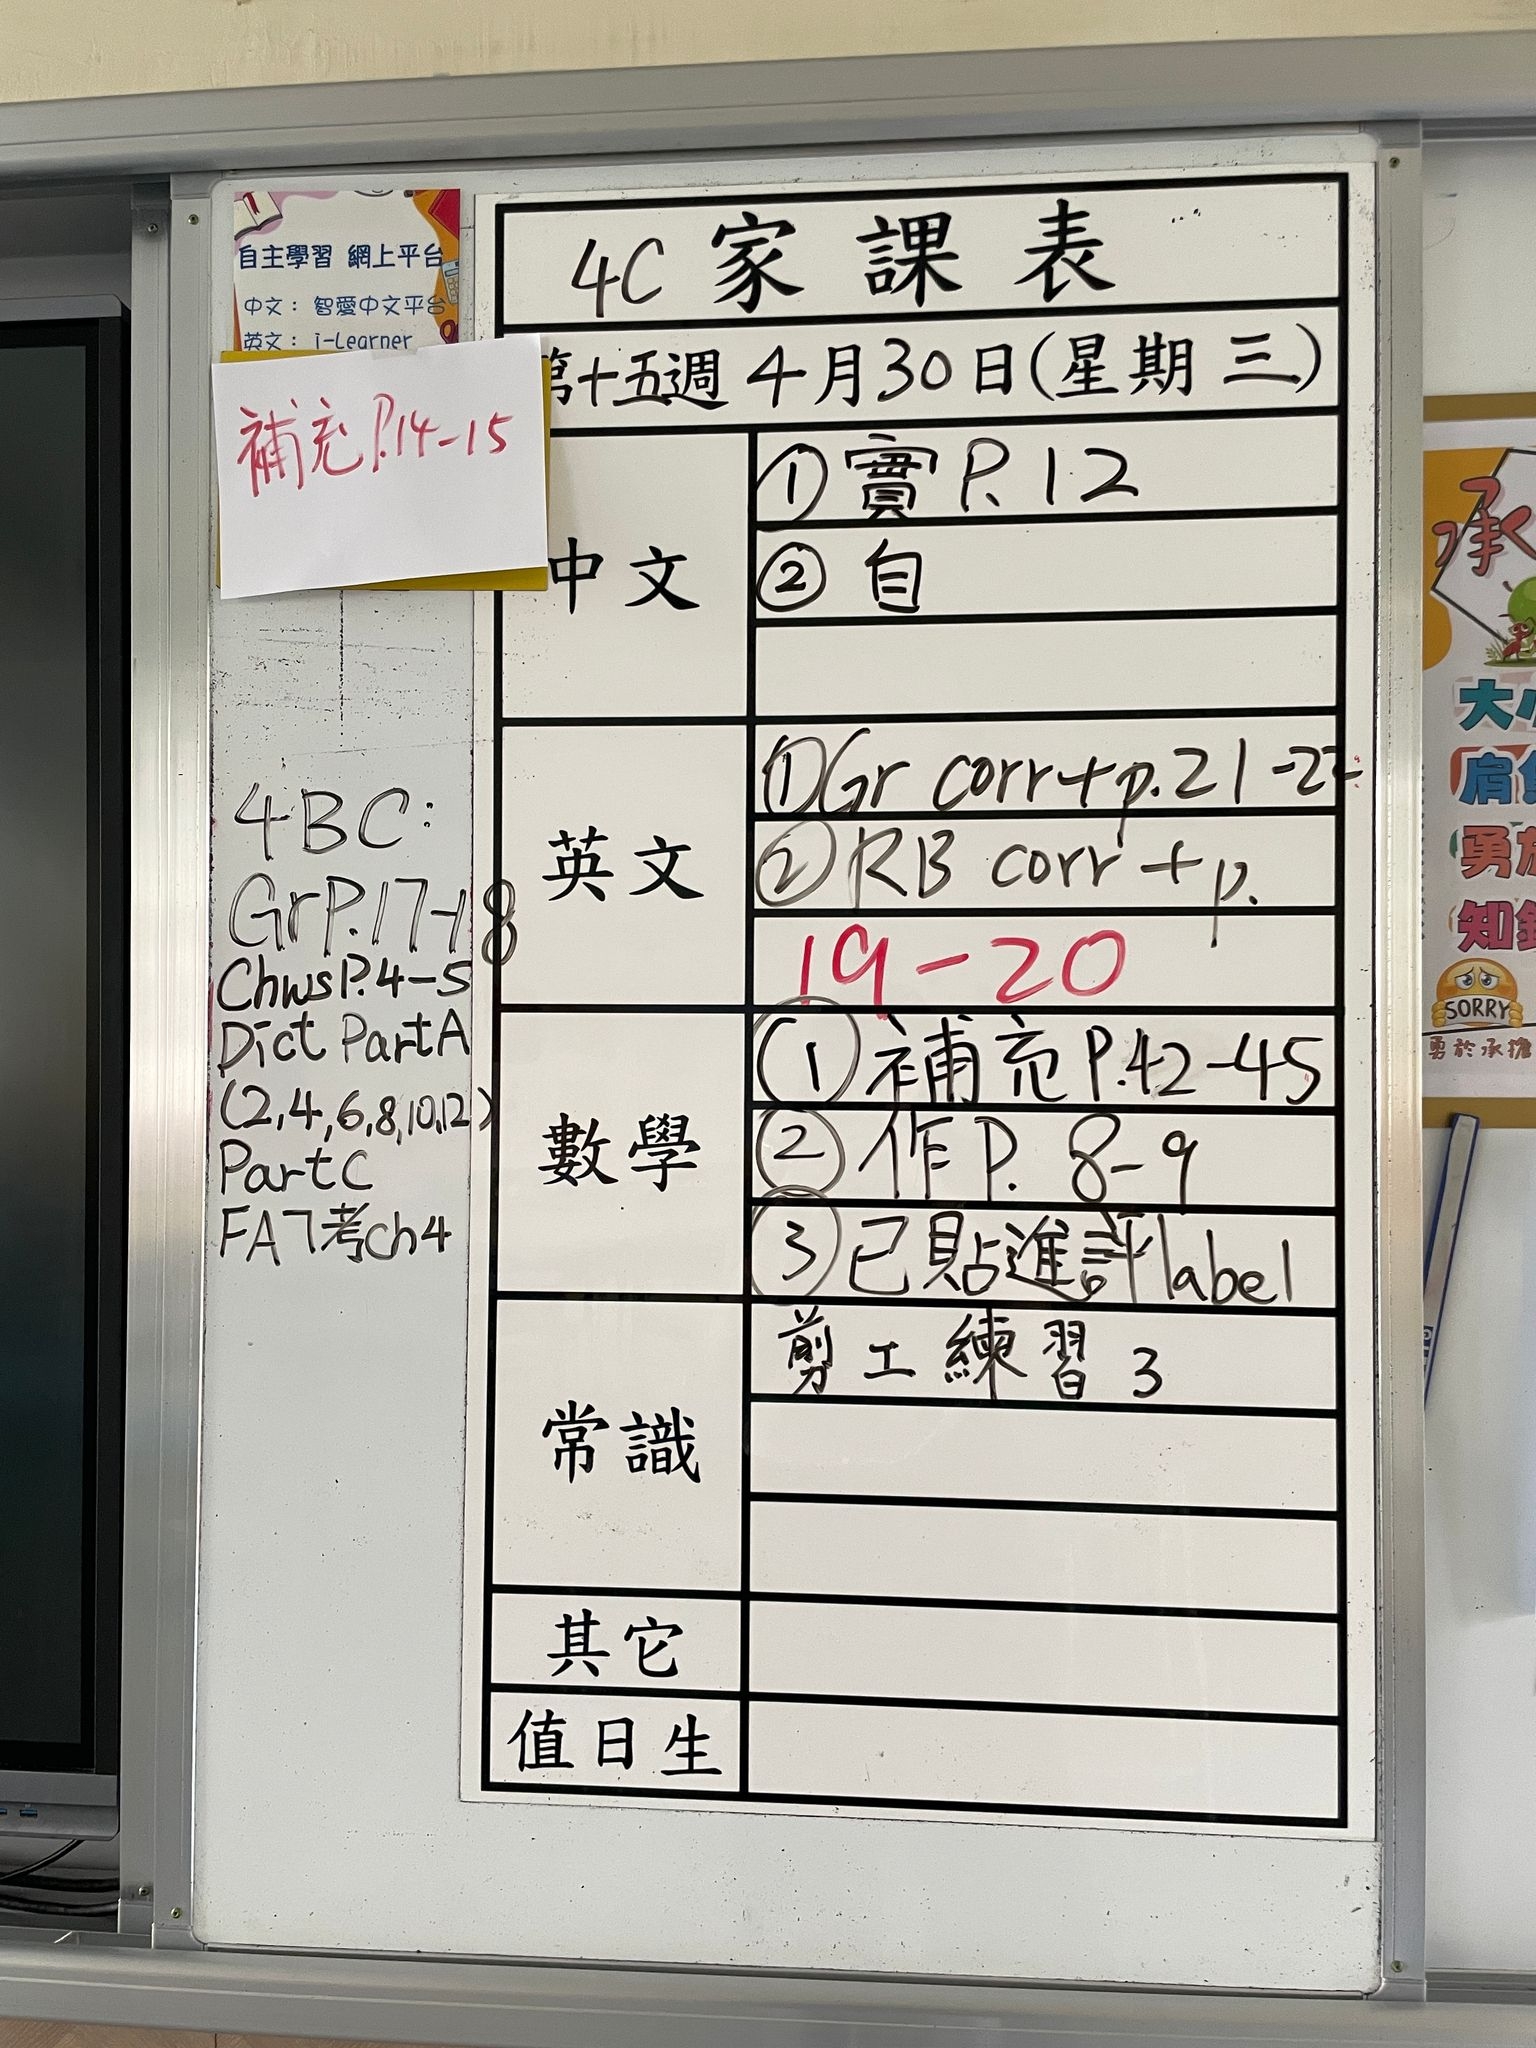 自主學習 網上平台
中文： 智愛中文平台
英文： i-Learner
補充 P.14-15
4C 家課表
第十五週 4月30日(星期三)
中文
① 實 P.12
② 自
英文
① Gr corr + p.21-22
② RB corr + p.
19-20
數學
① 補充 P.42-45
② 作 P. 8-9
③ 已貼進評 label
常識
剪工練習 3
其它
值日生
4BC:
Gr P.17-18
Chws P.4-5
Dict Part A
(2,4,6,8,10,12)
Part C
FA7考ch4
承
大
肩
勇於
知
SORRY
勇於承擔